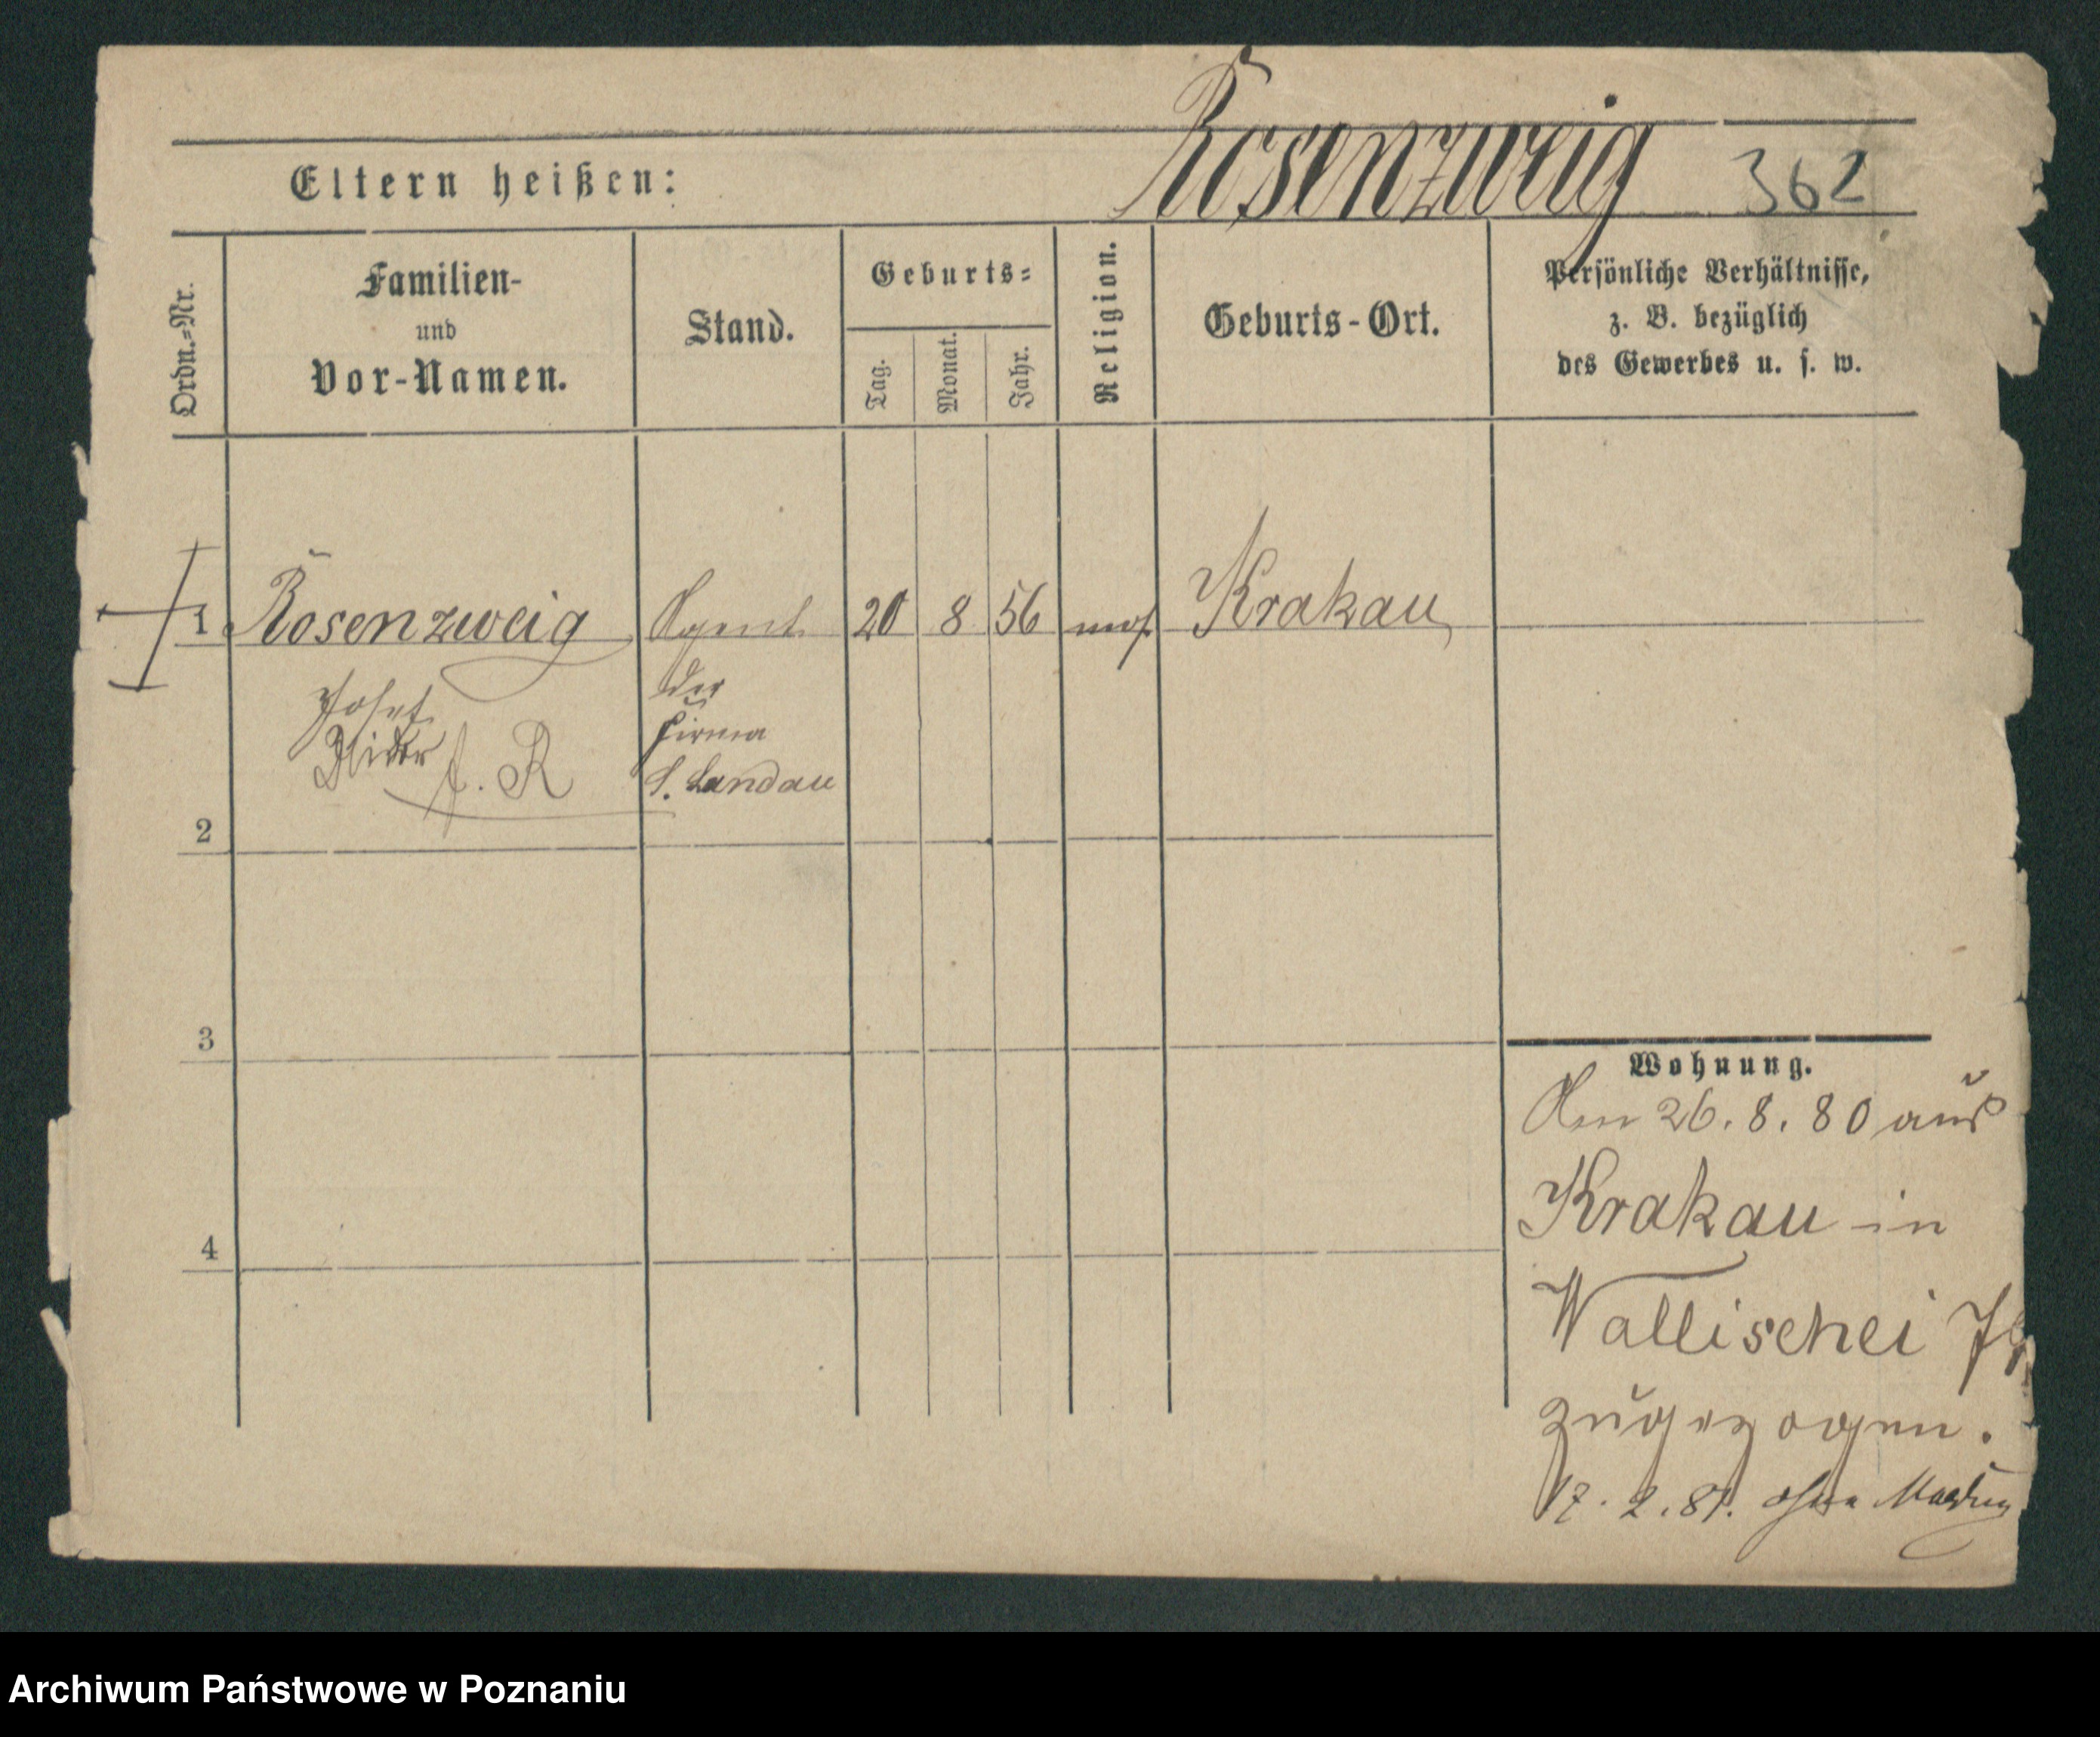 Rosenzweig 362
Eltern heißen:
Ordn.-Nr.
Familien-
und
Vor-Namen.
Stand.
Geburts-
Tag.
Monat.
Jahr.
Religion.
Geburts-Ort.
Persönliche Verhältnisse,
z. B. bezüglich
des Gewerbes u. s. w.
1 Rosenzweig Agent 20 8 56 mos. Krakau
Josef
der
Firma
R
S. Landau
2
3
4
Wohnung.
Am 26.8.80 aus
Krakau in
Wallischei
zugezogen.
17.2.81. ohne
Archiwum Państwowe w Poznaniu